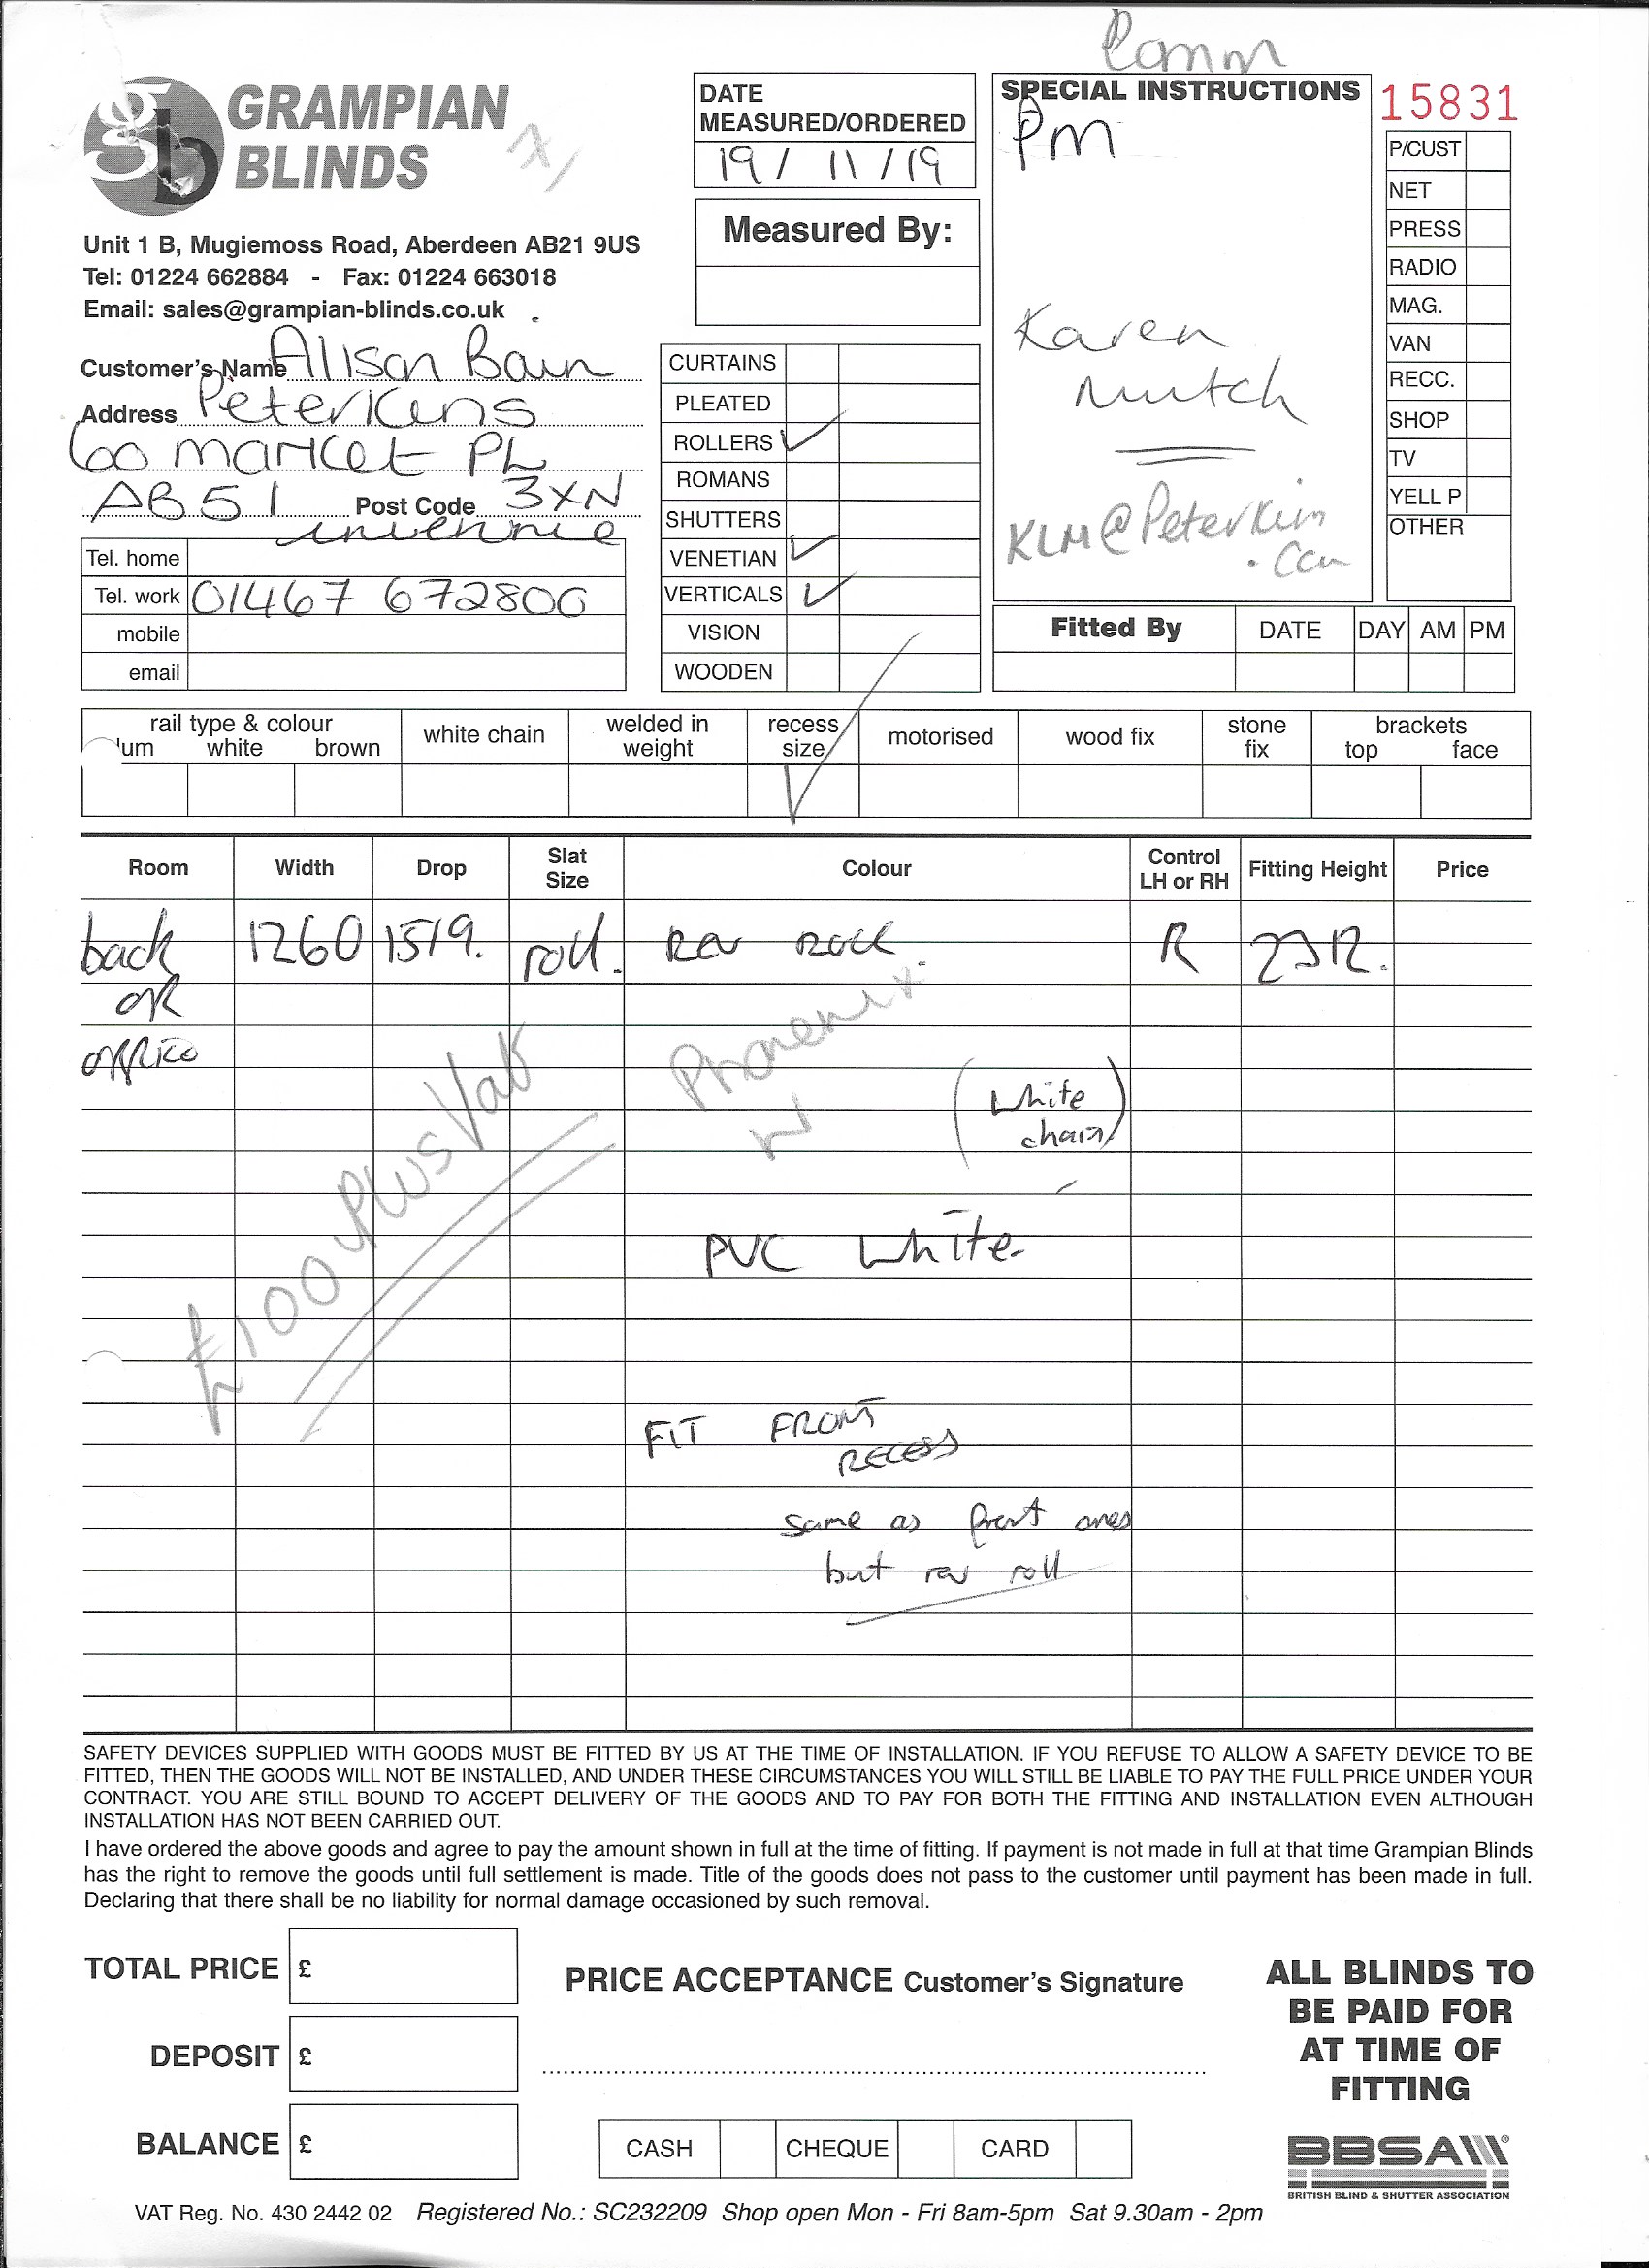 Comm
GRAMPIAN
BLINDS
Unit 1 B, Mugiemoss Road, Aberdeen AB21 9US
Tel: 01224 662884 - Fax: 01224 663018
Email: sales@grampian-blinds.co.uk
DATE
MEASURED/ORDERED
19 / 11 / 19
Measured By:
SPECIAL INSTRUCTIONS
PM
Karen
Mutch
KLM@Peterkin
.com
15831
P/CUST
NET
PRESS
RADIO
MAG.
VAN
RECC.
SHOP
TV
YELL P
OTHER
Customer's Name Alison Bain
Address Peterkins
60 Market PL
AB51 Post Code 3XN
Inverurie
Tel. home
Tel. work 01467 672800
mobile
email
CURTAINS
PLEATED
ROLLERS ✓
ROMANS
SHUTTERS
VENETIAN ✓
VERTICALS ✓
VISION
WOODEN
Fitted By DATE DAY AM PM
rail type & colour
um white brown
white chain
welded in
weight
recess
size ✓
motorised
wood fix
stone
fix
brackets
top face
Room Width Drop Slat Size Colour Control LH or RH Fitting Height Price
back 1260 1519. roll. Rev Roll R
OR
OFFICE
Phoenix
(White
chain)
£100 Plus Vat
PVC White
FIT FRONT
RECESS
same as front ones
but rev roll
SAFETY DEVICES SUPPLIED WITH GOODS MUST BE FITTED BY US AT THE TIME OF INSTALLATION. IF YOU REFUSE TO ALLOW A SAFETY DEVICE TO BE
FITTED, THEN THE GOODS WILL NOT BE INSTALLED, AND UNDER THESE CIRCUMSTANCES YOU WILL STILL BE LIABLE TO PAY THE FULL PRICE UNDER YOUR
CONTRACT. YOU ARE STILL BOUND TO ACCEPT DELIVERY OF THE GOODS AND TO PAY FOR BOTH THE FITTING AND INSTALLATION EVEN ALTHOUGH
INSTALLATION HAS NOT BEEN CARRIED OUT.
I have ordered the above goods and agree to pay the amount shown in full at the time of fitting. If payment is not made in full at that time Grampian Blinds
has the right to remove the goods until full settlement is made. Title of the goods does not pass to the customer until payment has been made in full.
Declaring that there shall be no liability for normal damage occasioned by such removal.
TOTAL PRICE £
DEPOSIT £
BALANCE £
PRICE ACCEPTANCE Customer's Signature
CASH CHEQUE CARD
ALL BLINDS TO
BE PAID FOR
AT TIME OF
FITTING
BBSA
BRITISH BLIND & SHUTTER ASSOCIATION
VAT Reg. No. 430 2442 02 Registered No.: SC232209 Shop open Mon - Fri 8am-5pm Sat 9.30am - 2pm